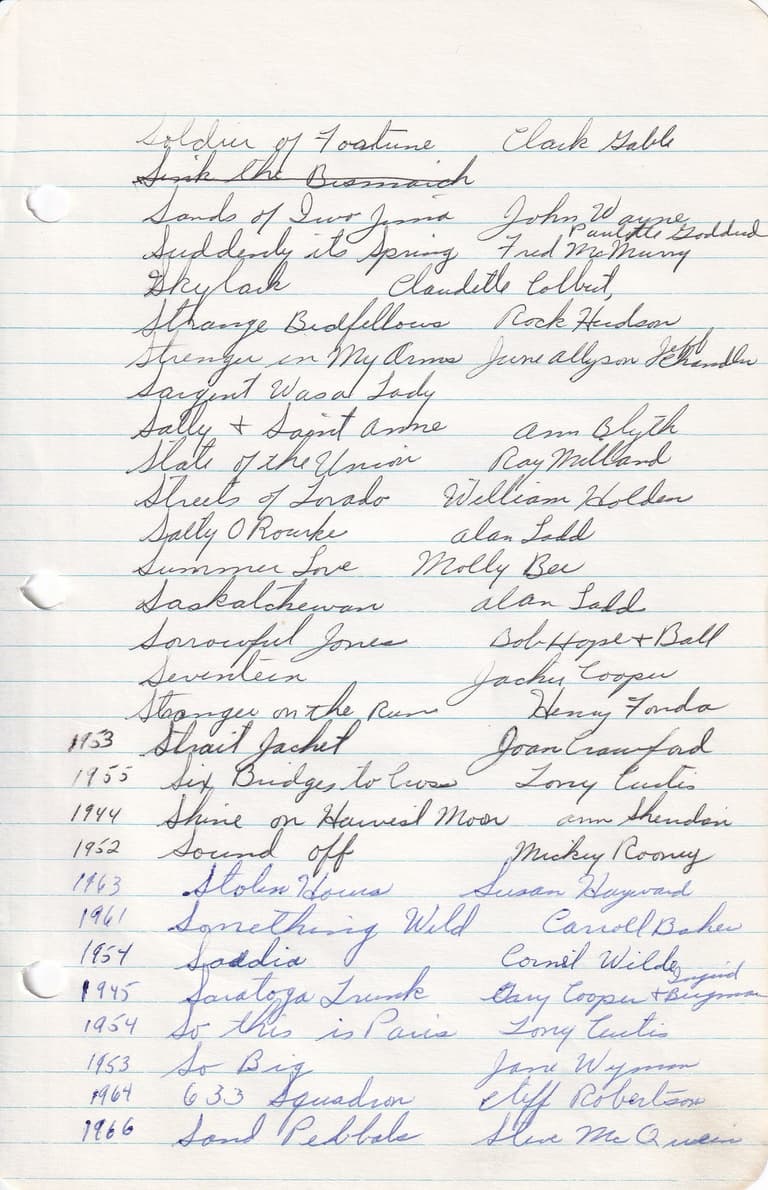 Soldier of Fortune Clark Gable
Sink the Bismarch
Sands of Iwo Jima John Wayne
Paulette Goddard
Suddenly its Spring Fred McMurry
Skylark Claudette Colbert,
Strange Bedfellows Rock Hudson
Stranger in My Arms June Allyson Jeff Chandler
Sargent Was a Lady
Sally + Saint Anne Ann Blyth
State of the Union Ray Milland
Streets of Lorado William Holden
Salty O Rourke Alan Ladd
Summer Love Molly Bee
Saskatchewan Alan Ladd
Sorrowful Jones Bob Hope + Ball
Seventeen Jackie Cooper
Stranger on the Run Henry Fonda
1953 Strait Jacket Joan Crawford
1955 Six Bridges to Cross Tony Curtis
1944 Shine on Harvest Moon Ann Sheridan
1952 Sound off Mickey Rooney
1963 Stolen Hours Susan Hayward
1961 Something Wild Carroll Baker
1954 Saadia Cornel Wilde
1945 Saratoga Trunk Gary Cooper + Ingrid Bergman
1954 So this is Paris Tony Curtis
1953 So Big Jane Wyman
1964 633 Squadron Cliff Robertson
1966 Sand Pebbals Steve McQueen